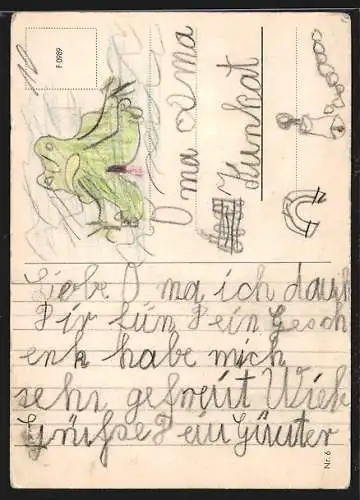 F 0989
Oma Oma
Kunkat
Liebe Oma ich dank
Dir fün Dein Gesch
enk habe mich
sehr gefreut Wiele
Grüfse Dein Günter
Nr. 6